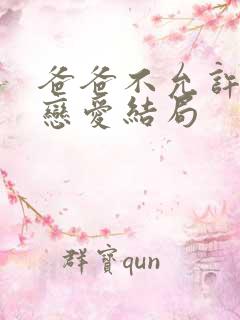 爸爸不允許
戀愛結局
群寶qun